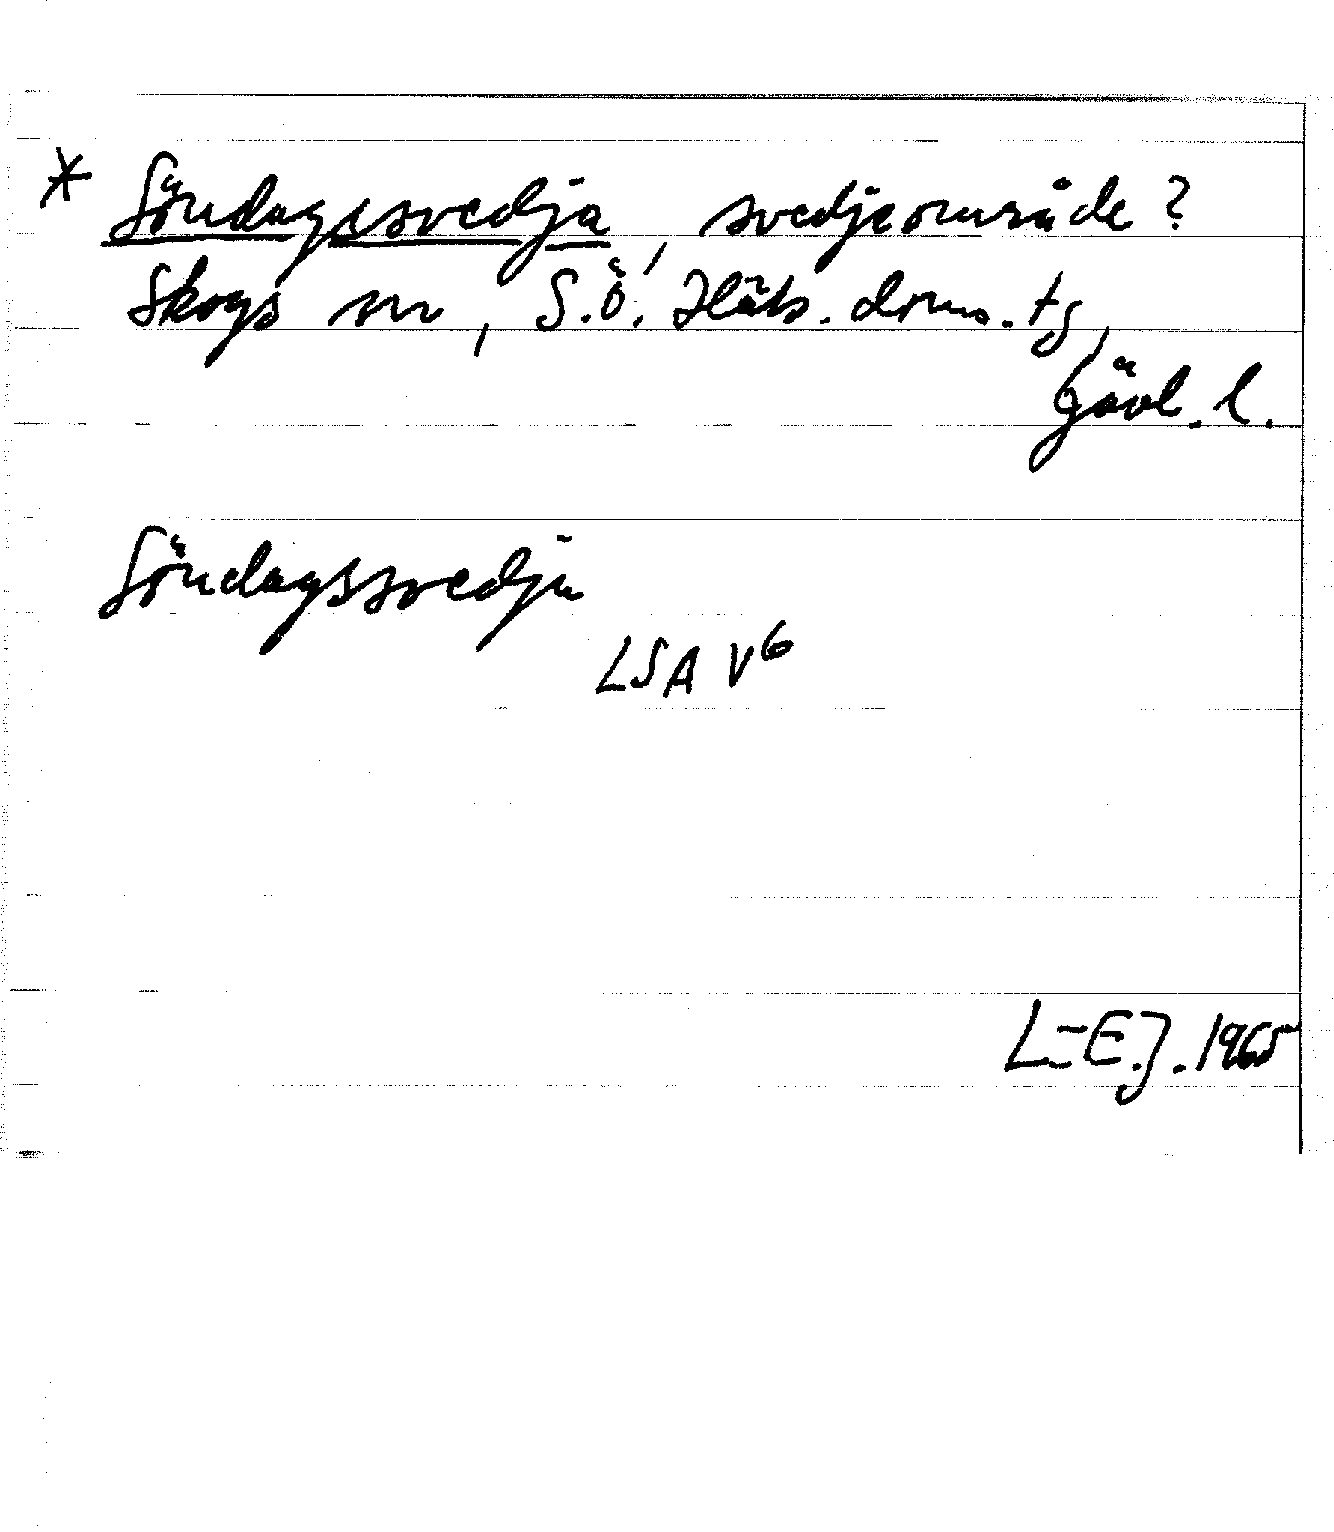 * Söndagssvedja, svedjeområde?
Skogs sn, S.Ö. Häls. doms. tg,
Gävl. l.
Söndagssvedju
LSA V6
L-E.J. 1965